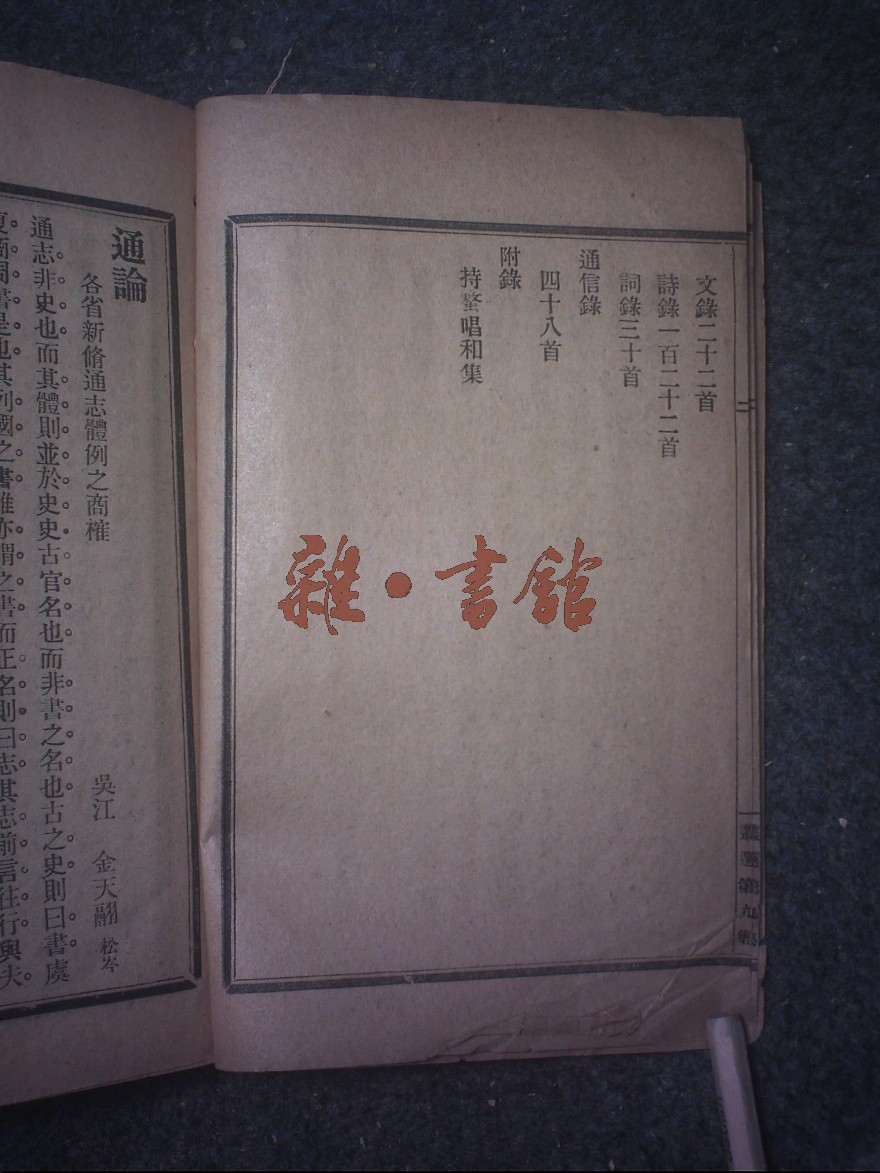 文錄二十二首
詩錄一百二十二首
詞錄三十首
通信錄
四十八首
附錄
持螯唱和集
雜·書館
第九
通論
各省新脩通志體例之商榷
吳江 金天翮 松岑
通志非史也而其體則並於史史古官名也而非書之名也古之史則曰書虞
夏商周書是也其列國之書雖亦謂之書而正名則曰志其志前言往行與夫